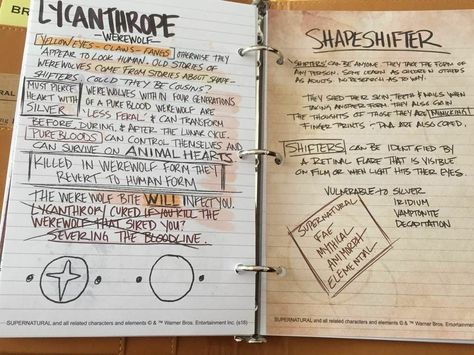 BR
LYCANTHROPE
-WEREWOLF-
YELLOW EYES - CLAWS - FANGS OTHERWISE THEY
APPEAR TO LOOK HUMAN. OLD STORIES OF
WEREWOLVES COME FROM STORIES ABOUT SHAPE-
SHIFTERS COULD THEY BE COUSINS?
MUST PIERCE
HEART WITH
SILVER
WEREWOLVES WITH IN FOUR GENERATIONS
OF A PURE BLOOD WEREWOLF ARE
"LESS FERAL" & CAN TRANSFORM
BEFORE, DURING, & AFTER THE LUNAR CYCLE.
PUREBLOODS CAN CONTROL THEMSELVES AND
CAN SURVIVE ON ANIMAL HEARTS.
KILLED IN WEREWOLF FORM THEY
REVERT TO HUMAN FORM
THE WEREWOLF BITE WILL INFECT YOU.
LYCANTHROPY CURED IF YOU KILL THE
WEREWOLF THAT SIRED YOU?
SEVERING THE BLOODLINE.
SUPERNATURAL and all related characters and elements © & ™ Warner Bros. Entertainment Inc. (s18)
SHAPESHIFTER
SHIFTERS CAN BE ANYONE. THEY TAKE THE FORM OF
ANY PERSON. SOME LEARN AS CHILDREN OTHERS
AS ADULTS. NO RESEARCH AS TO WHY.
- THEY SHED THEIR SKIN TEETH & NAILS WHEN
TAKING ANOTHER FORM. THEY ALSO GAIN
THE THOUGHTS OF THOSE THEY ARE MIMICKING.
FINGER PRINTS - DNA ARE ALSO COPIED.
SHIFTERS CAN BE IDENTIFIED BY
A RETINAL FLARE THAT IS VISIBLE
ON FILM OR WHEN LIGHT HITS THEIR EYES.
VULNERABLE TO SILVER
IRIDIUM
VAMPTONITE
DECAPITATION
SUPERNATURAL
FAE
MYTHICAL
ANIMORTH
ELEMENTAL
SUPERNATURAL and all related characters and elements © & ™ Warner Bros. Entertainment Inc.